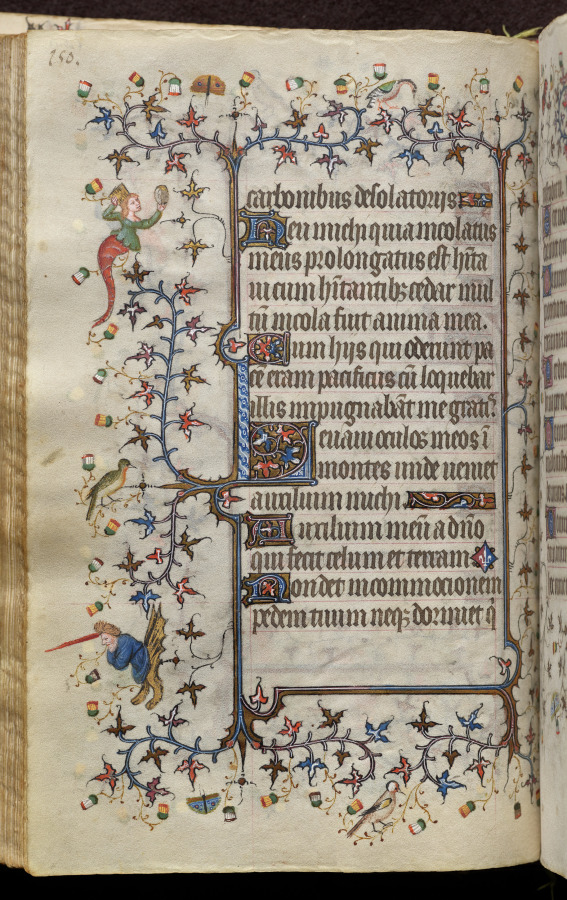 150.
carbonibus desolatoriis
Heu michi quia incolatus
meus prolongatus est h̄ita
ui cum h̄itantibꝫ cedar mul
tū incola fuit anima mea.
Cum hiis qui oderunt pa
cē eram pacificus cū loquebar
illis impugnabāt me gratis
Leuaui oculos meos ī
montes unde ueniet
auxilium michi
Auxilium meū a dn̄o
qui fecit celum et terram
Non det in commocionem
pedem tuum neqꝫ dormiet q̄